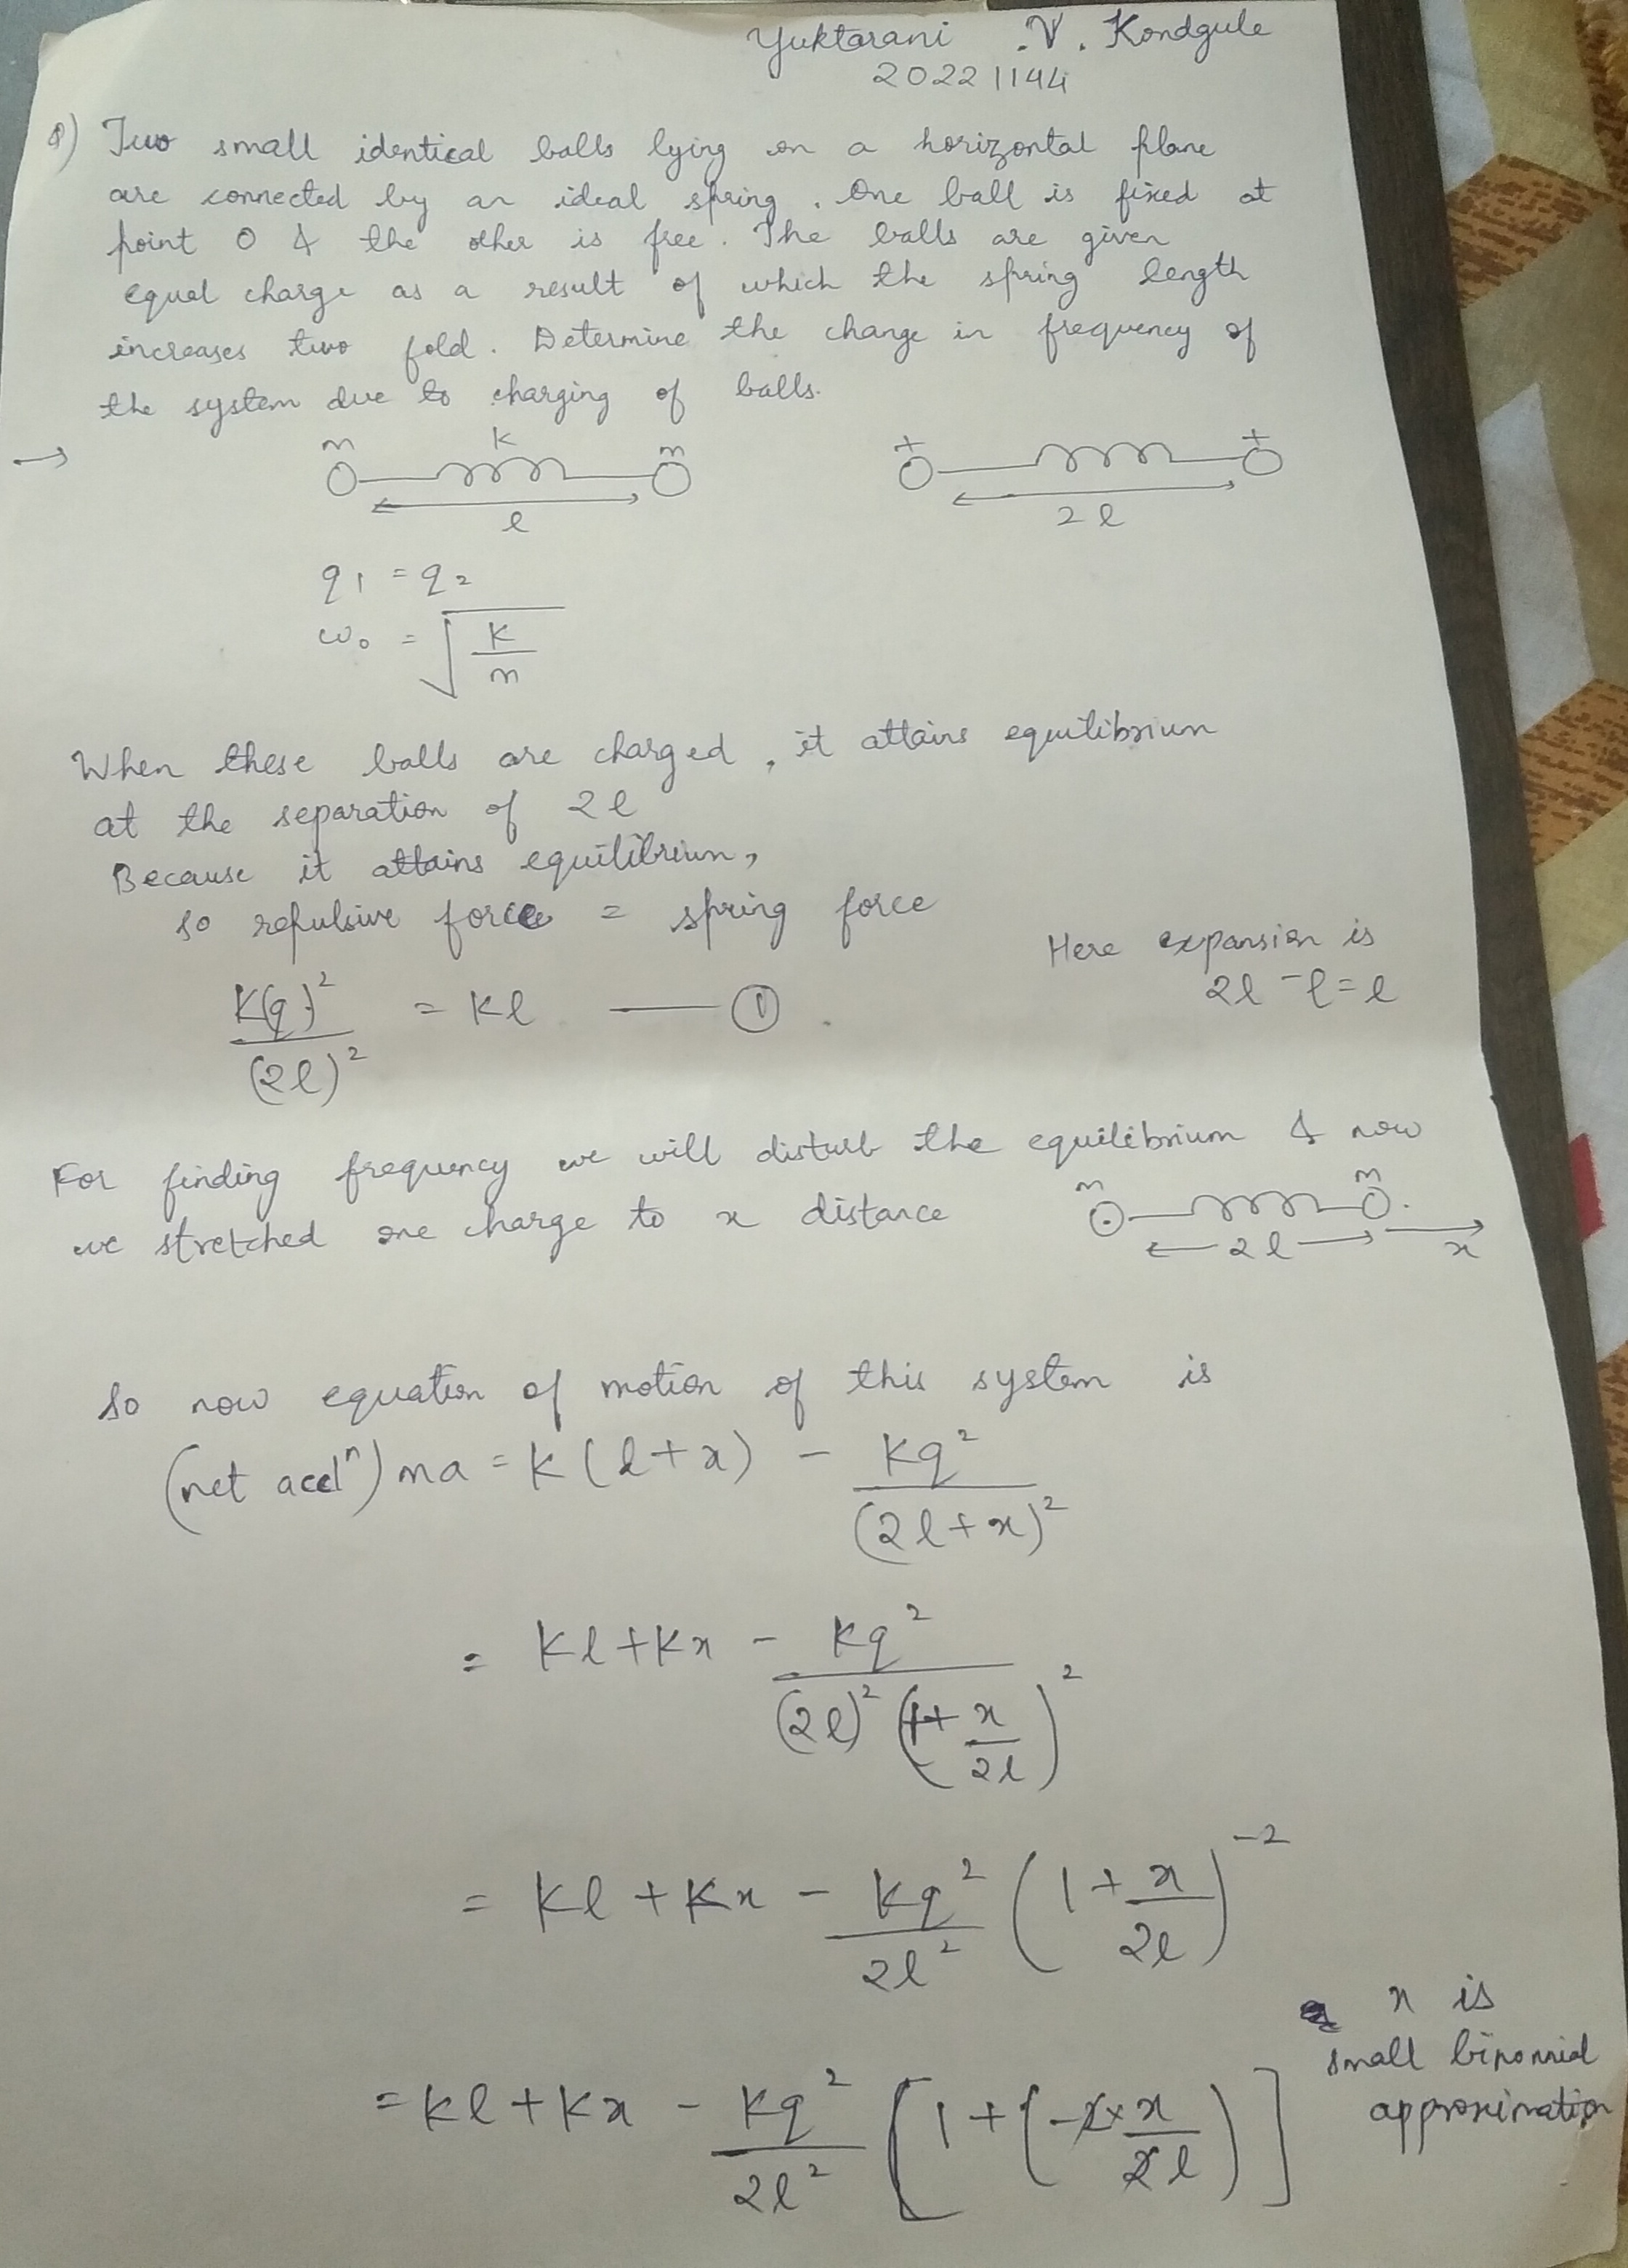 Yuktarani .V. Kondgule
20221144
Q) Two small identical balls lying on a horizontal plane
are connected by an ideal spring. One ball is fixed at
point O & the other is free. The balls are given
equal charge as a result of which the spring length
increases two fold. Determine the change in frequency of
the system due to charging of balls.
→ m K m + +
l 2l
q₁ = q₂
ω₀ = √(K/m)
When these balls are charged, it attains equilibrium
at the separation of 2l
Because it attains equilibrium,
so repulsive force = spring force
Here expansion is
2l - l = l
K(q)²/(2l)² = Kl —— ①
For finding frequency we will disturb the equilibrium & now
we stretched one charge to x distance
m m
2l x
So now equation of motion of this system is
(net accⁿ) ma = K(l+x) - Kq²/(2l+x)²
= Kl+Kx - Kq²/((2l)²(1+x/2l)²)
= Kl+Kx - Kq²/2l² (1+x/2l)⁻²
x is
small binomial
approximation
= Kl+Kx - Kq²/2l² [1+(-2×x/2l)]